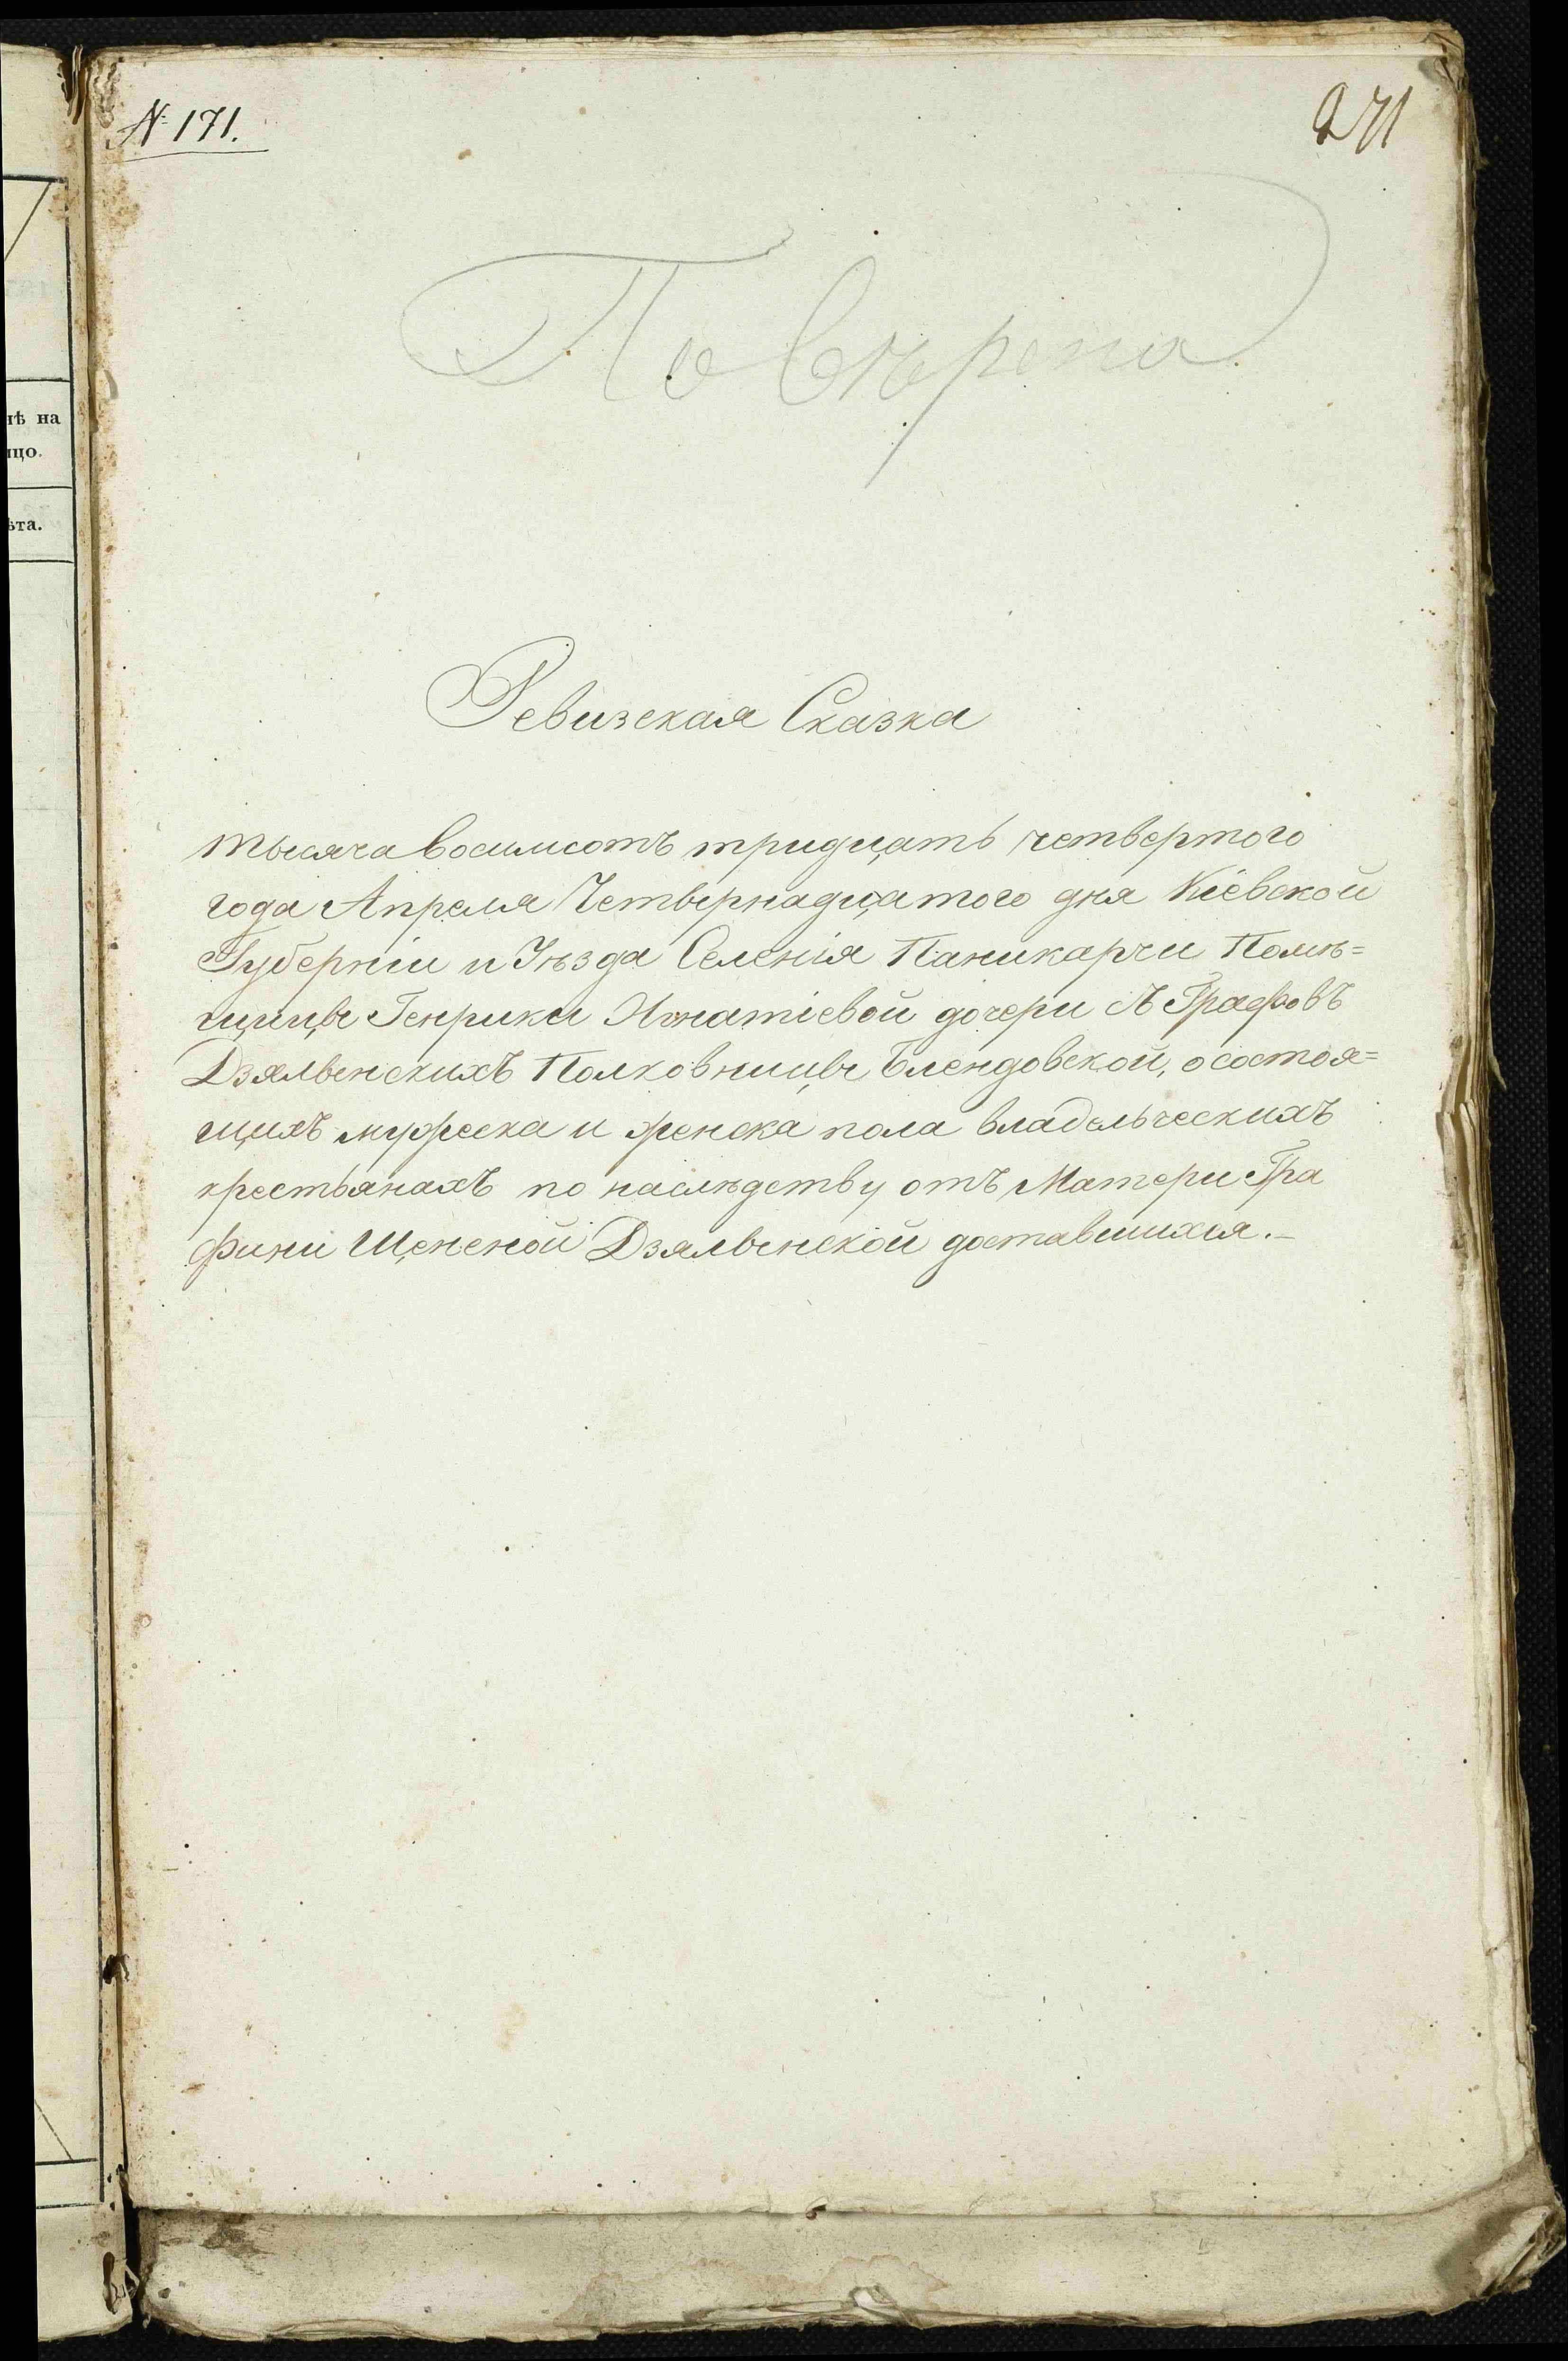 № 171.
271
Повѣрена
нѣ на
цо.
ѣта.
Ревизская Сказка
тысяча восимсотъ тридцать четвертого
года Апреля Четвернадцатого дня Кіевской
Губерніи и Уѣзда Селенія Паникарчи Помѣ=
щицы Генрики Игнатіевой дочери Графовъ
Дзялынскихъ Полковницы Блендовской, о состоя=
щихъ мужеска и женска пола владельческихъ
крестьянахъ по наслѣдству отъ Матери Гра
фини Щенсной Дзялынской доставшихся.